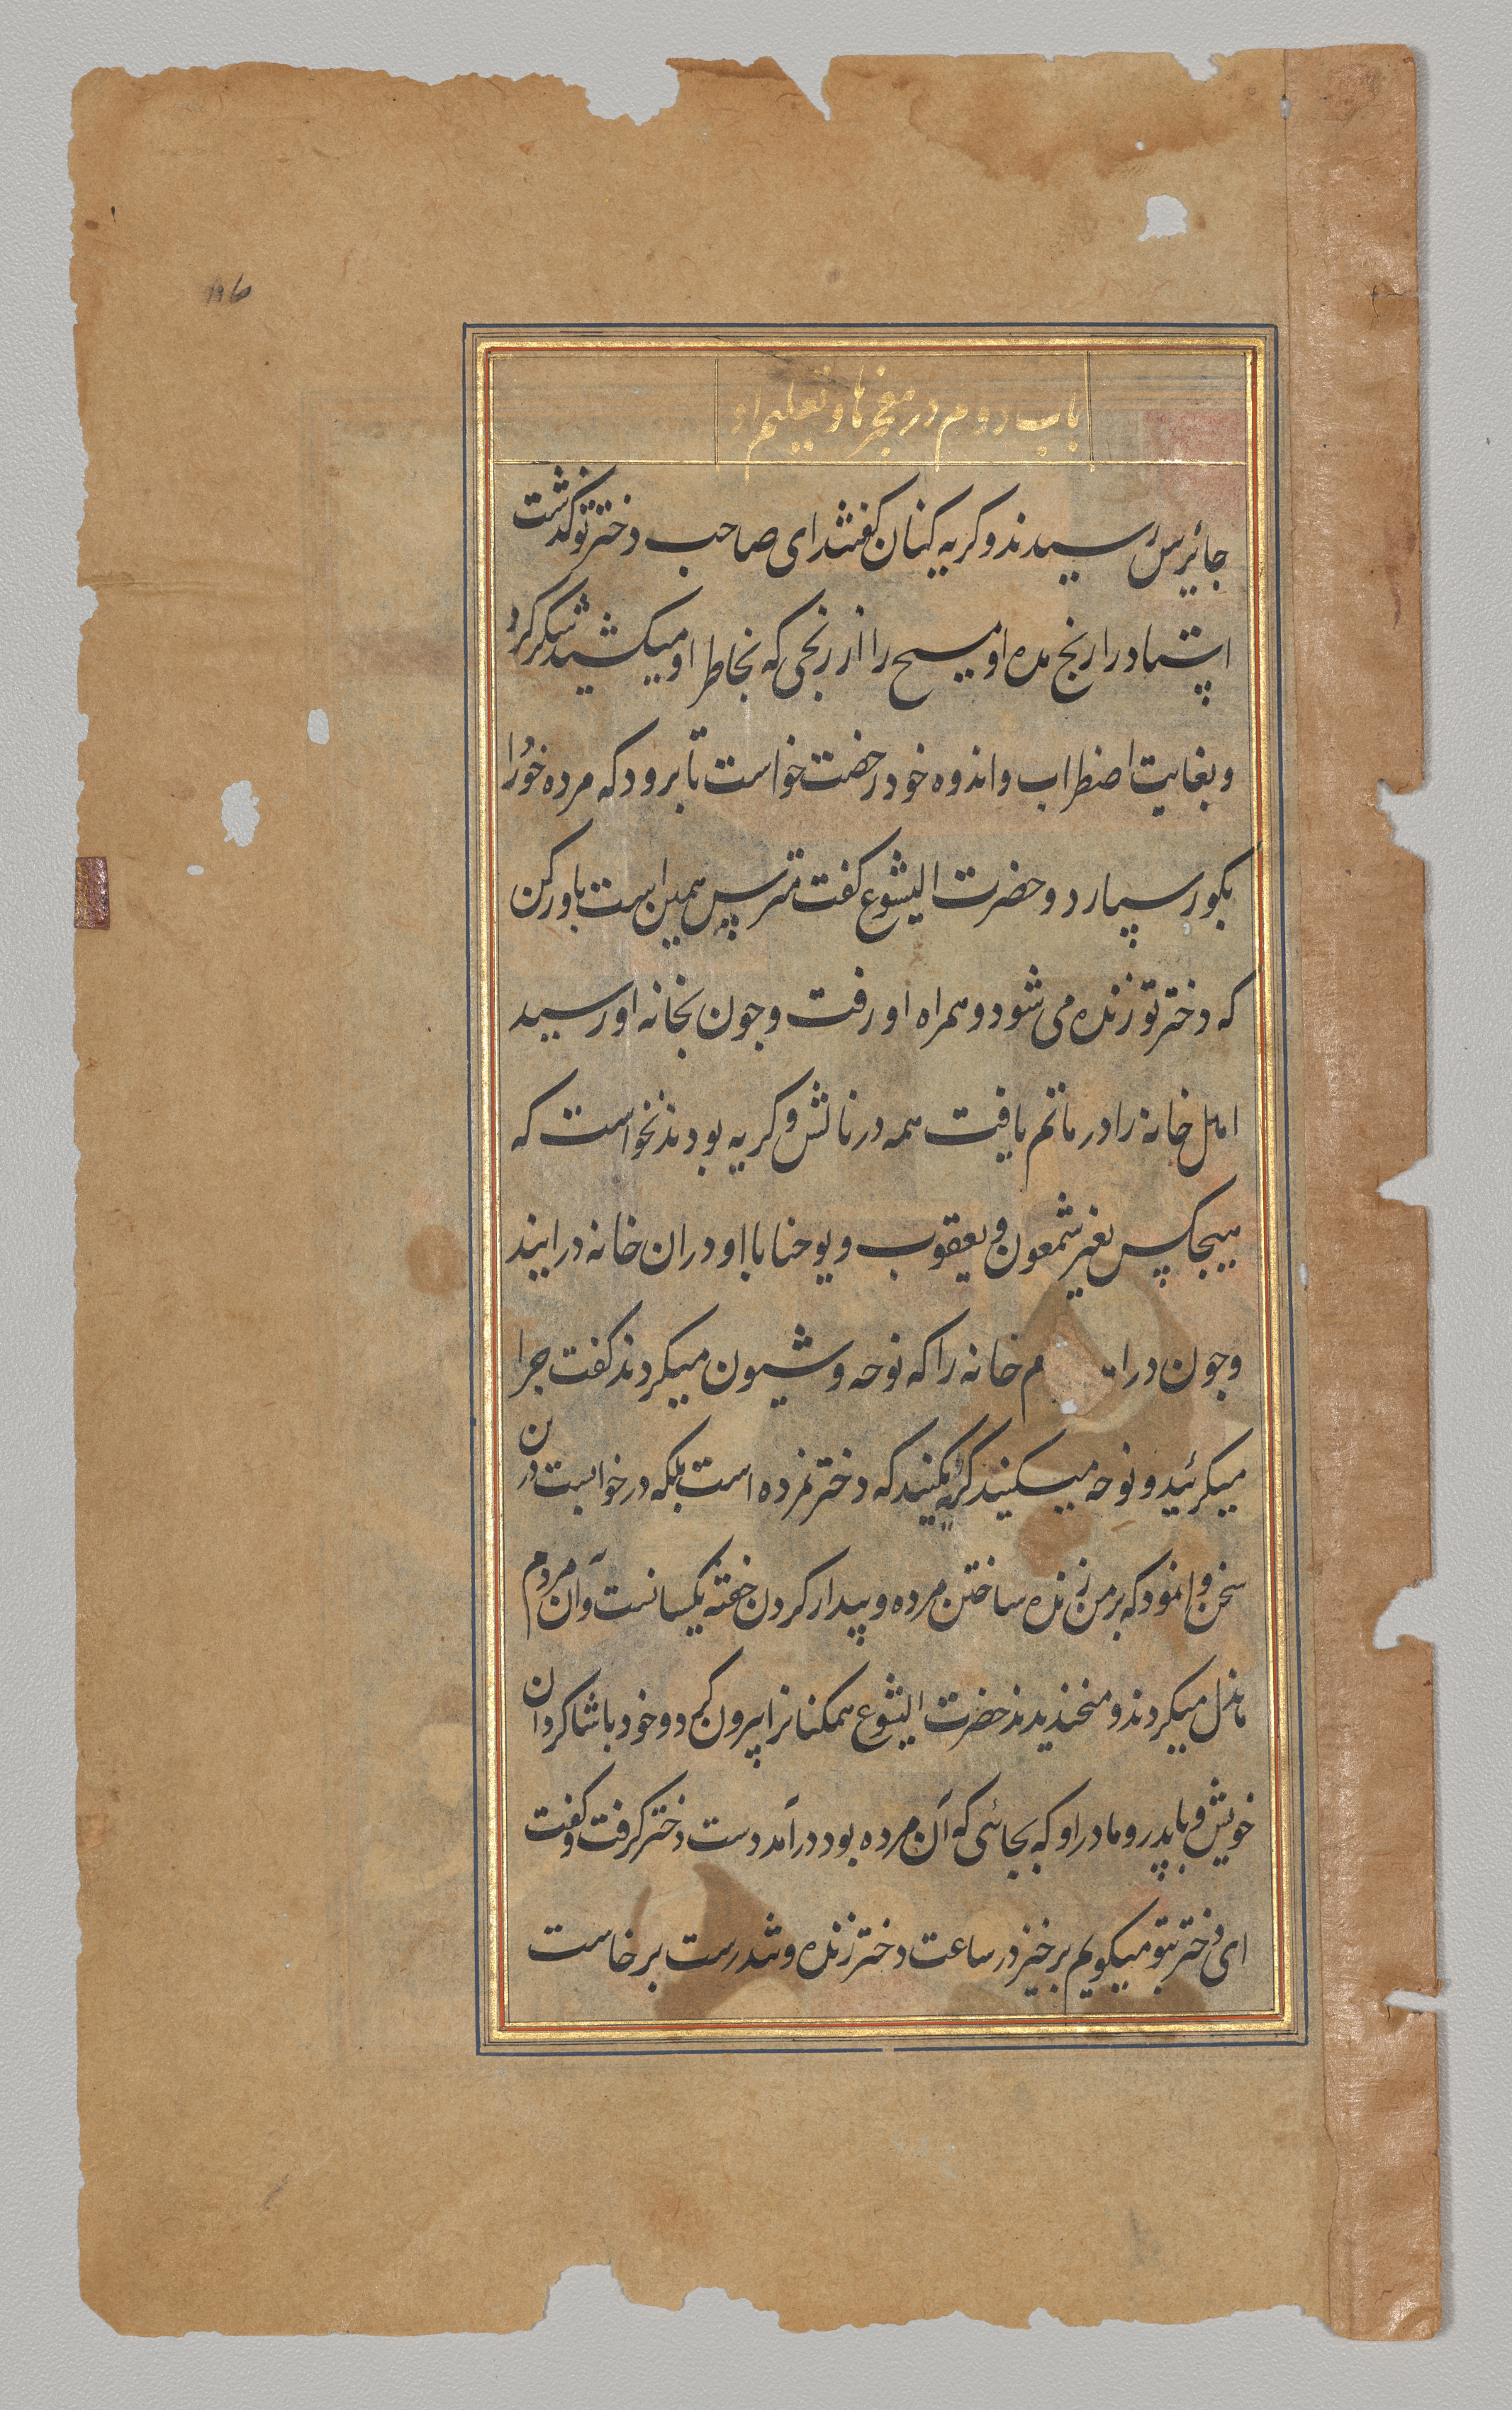 196
باب دوم در معجزها و تعلیم او
جائیرس رسیدند و کریه کنان کفتند ای صاحب دختر تو کذشت
استاد را رنج مده او مسیح را از رنجی که بخاطر او میکشید شکر کرد
و بغایت اضطراب و اندوه خود رخصت خواست تا برود که مرده خود را
بکور سپارد و حضرت ایشوع کفت مترس همین است باور کن
که دختر تو زنده می شود و همراه او رفت و چون بخانه او رسید
اهل خانه را در ماتم یافت همه در نالش و کریه بودند نخواست که
هیچکس بغیر شمعون و یعقوب و یوحنا با او دران خانه درایند
و چون درا م خانه را که نوحه و شیون میکردند کفت چرا
میکرئید و نوحه میکنید کریه مکنید که دختر نمرده است بلکه در خوابست درین
سخن وانمود که بر من زنده ساختن مرده و بیدار کردن خفته یکسانست و آن مردم
هزل میکردند و میخندیدند حضرت ایشوع همکنانرا بیرون کرد و خود با شاکردان
خویش و با پدر و مادر او که بجائی که آن مرده بود درآمد دست دختر کرفت و کفت
ای دختر بتو میکویم برخیز در ساعت دختر زنده و تندرست برخاست